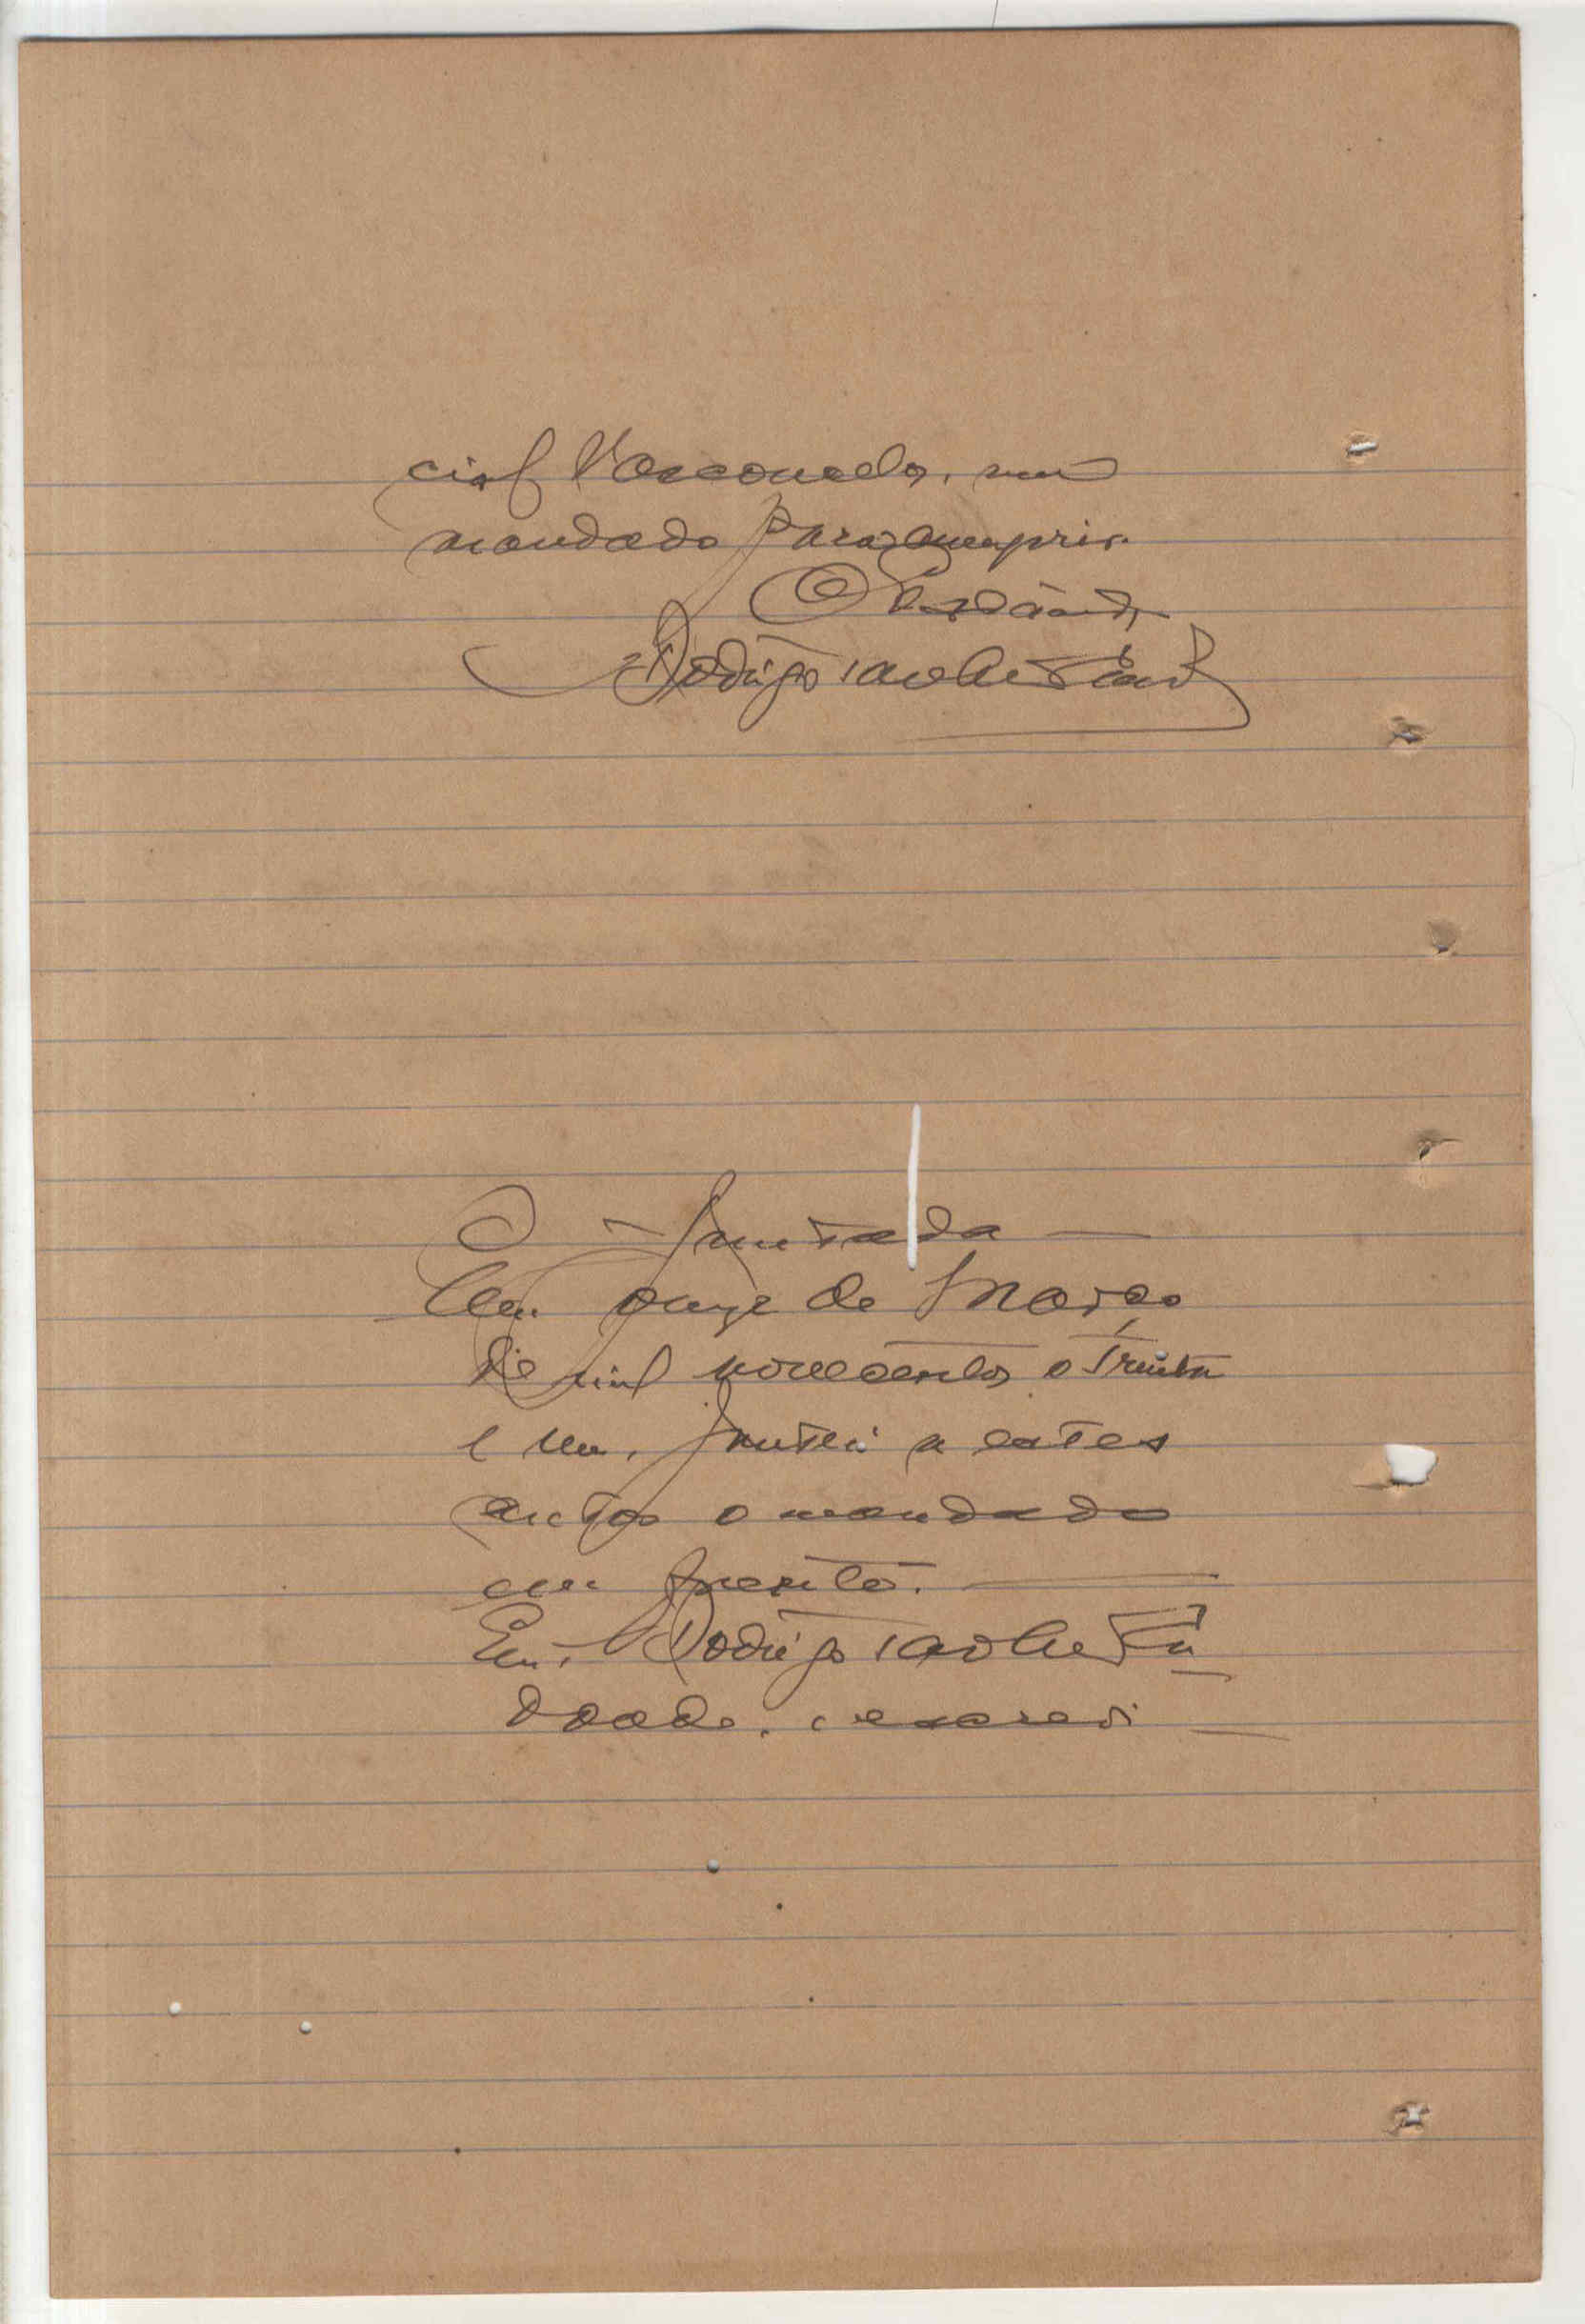 cial Vasconcelos, um
mandado para cumprir.
O Escrivão
Rodrigo
Juntada
Em onze de Março
de mil novecentos e trinta
e um, juntei a estes
autos o mandado
em frente.
Eu, Rodrigo
escrevi